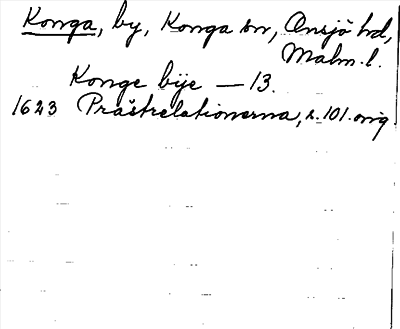 Konga, by, Konga sn, Onsjö hd,
Malm. l.
Konge bÿe — 13.
1623 Prästrelationerna, s. 101. orig